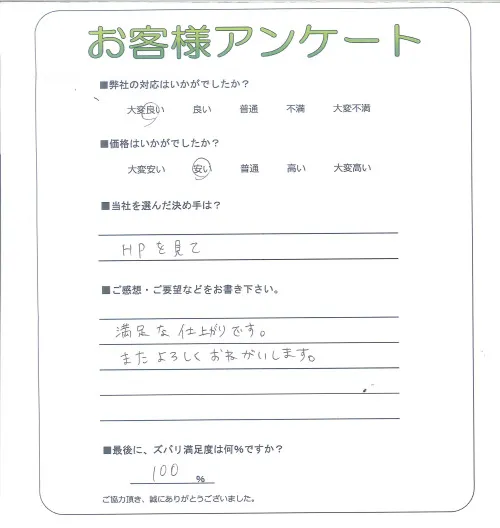 お客様アンケート
■弊社の対応はいかがでしたか？
大変良い 良い 普通 不満 大変不満
■価格はいかがでしたか？
大変安い 安い 普通 高い 大変高い
■当社を選んだ決め手は？
HPを見て
■ご感想・ご要望などをお書き下さい。
満足な仕上がりです。
またよろしくおねがいします。
■最後に、ズバリ満足度は何％ですか？
100 ％
ご協力頂き、誠にありがとうございました。